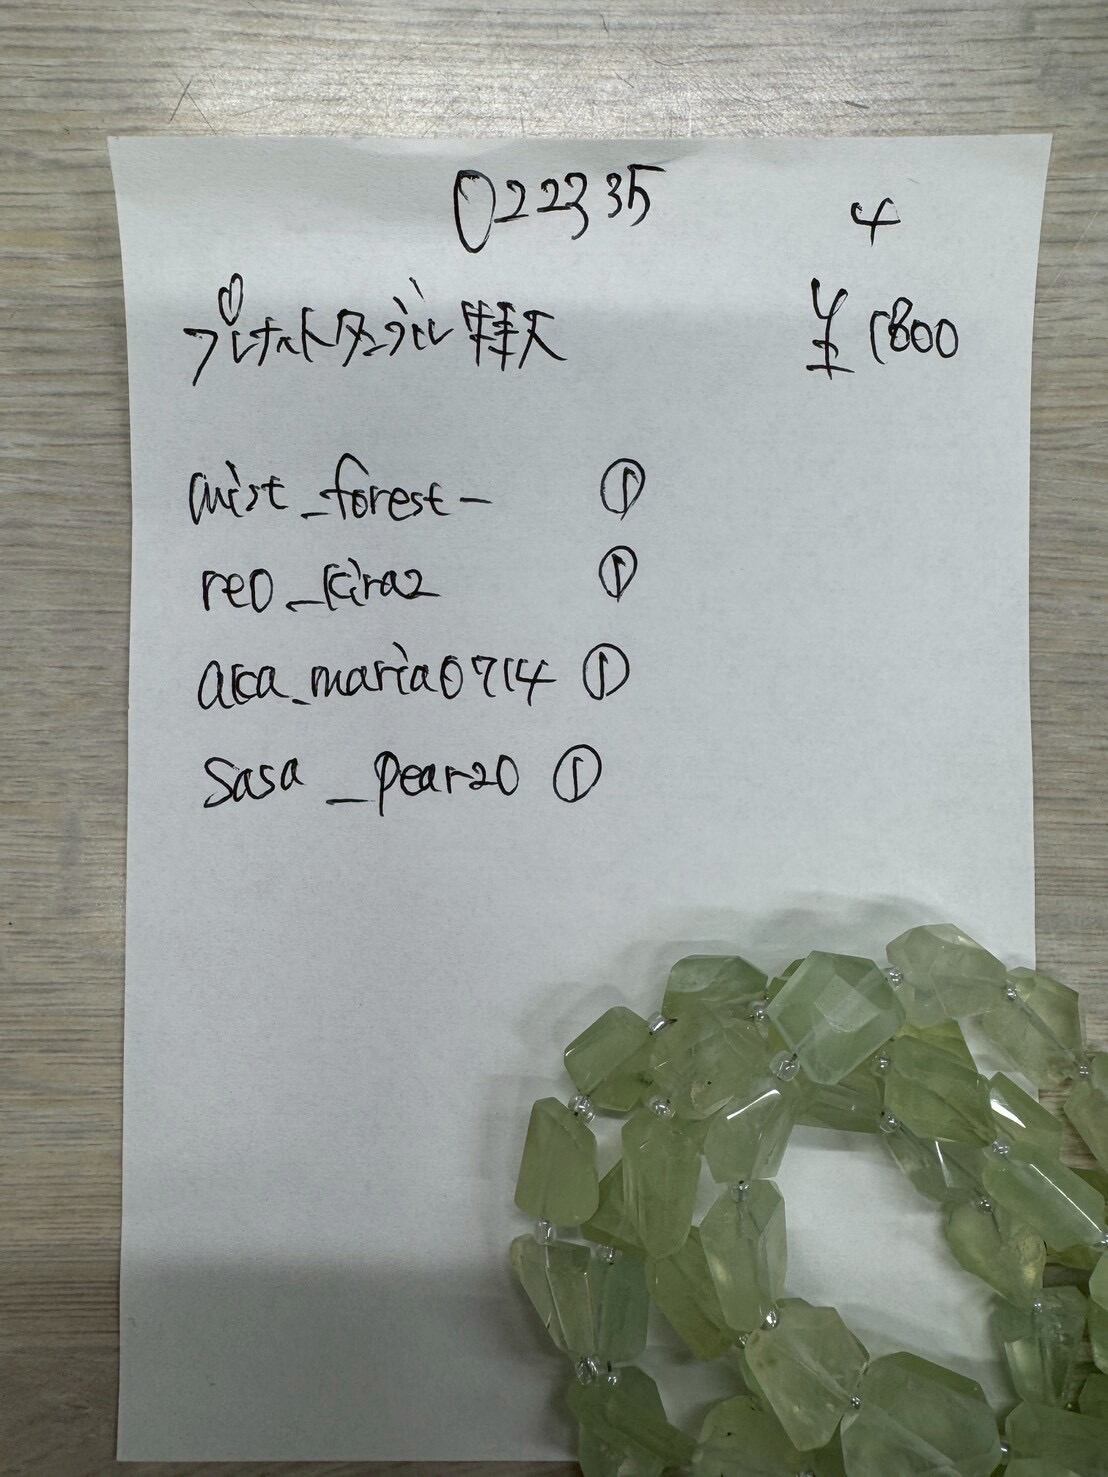 022335
4
プレナイトタンブル 特大
¥1800
mist_forest_ ①
reo_kira2 ①
aka_maria0714 ①
Sasa_pear20 ①